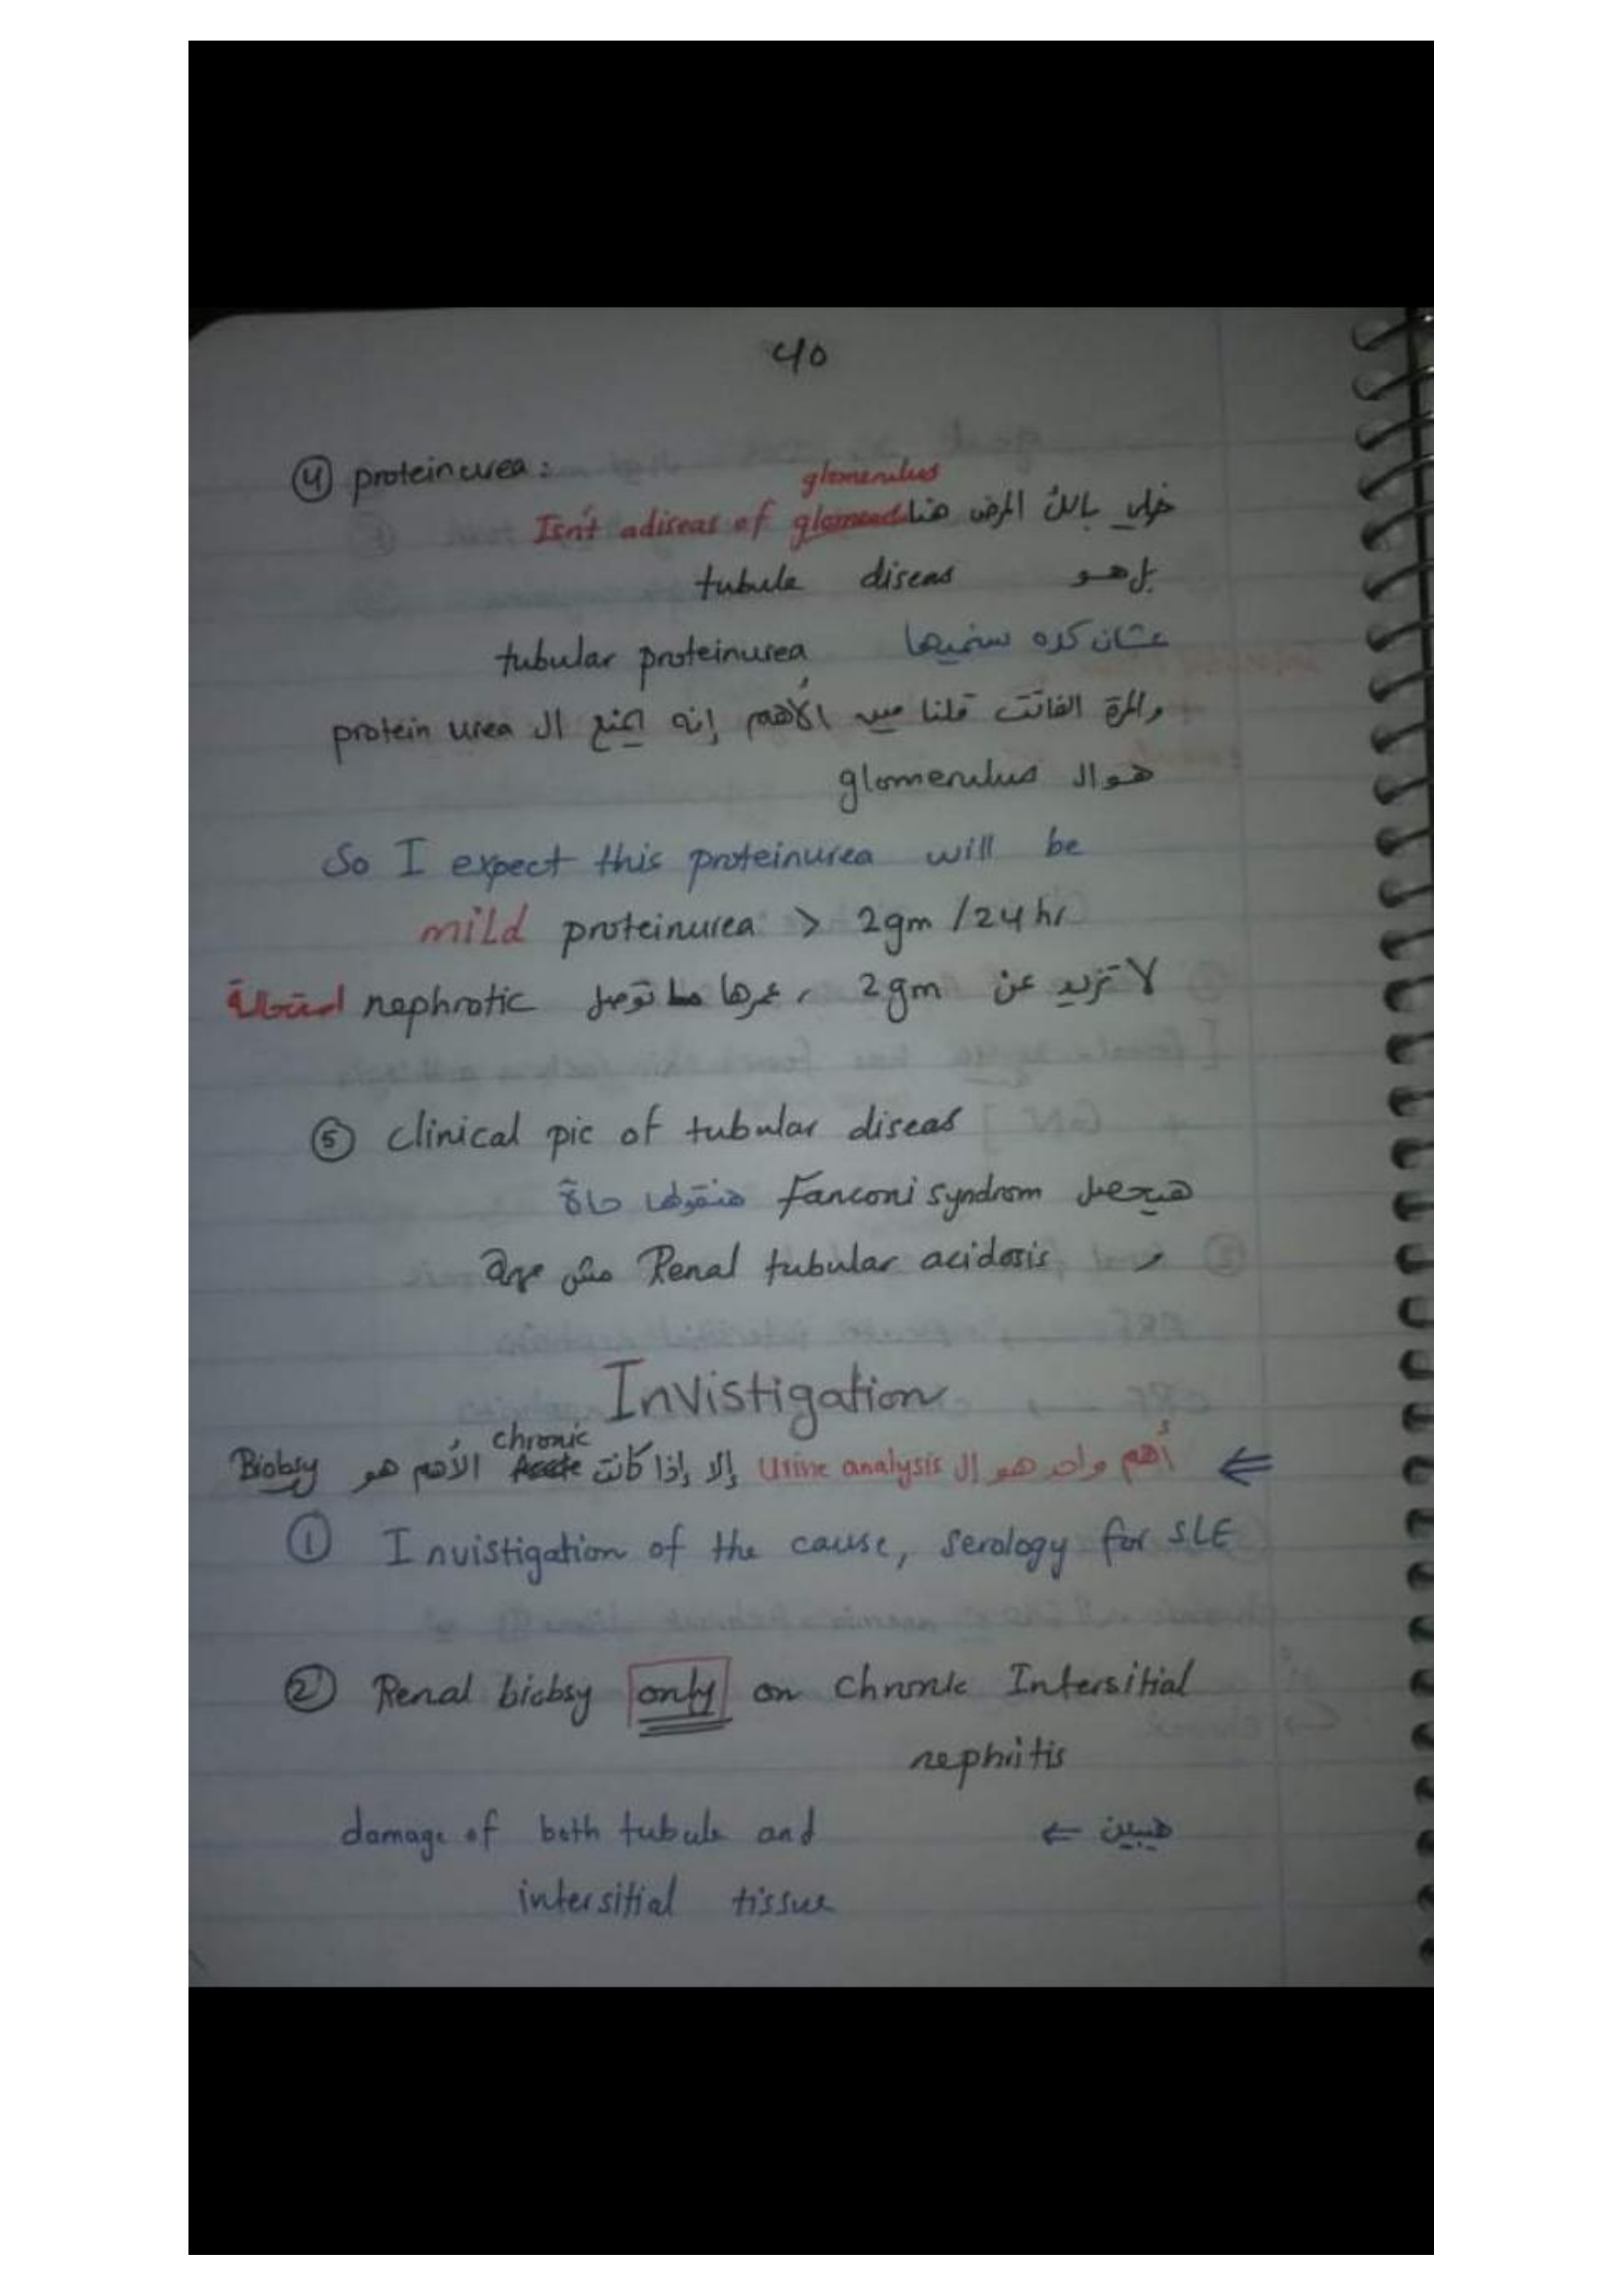 40
④ proteinurea :
glomerulus
خلي بالك المرض هنا Isn't adiseas of
بل هو tubule diseas
عشان كده سنسميها tubular proteinurea
والمرة الفاتت قلنا مين الأهم إنه يمنع ال protein urea
هو ال glomerulus
So I expect this proteinurea will be
mild proteinurea > 2gm /24 hr
لا تزيد عن 2 gm ، عمرها ما توصل nephrotic استحالة
⑤ clinical pic of tubular diseas
هيحصل Fanconi syndrom هنقولها
و Renal tubular acidosis مش مهمة
Invistigation
chronic
⇐ أهم واحد هو ال Urine analysis إلا إذا كانت Acute الأهم هو Biobsy
① Invistigation of the cause, serology for SLE
② Renal biobsy only on chronic Intersitial
nephritis
هيبين ⇐ damage of both tubule and
intersitial tissue